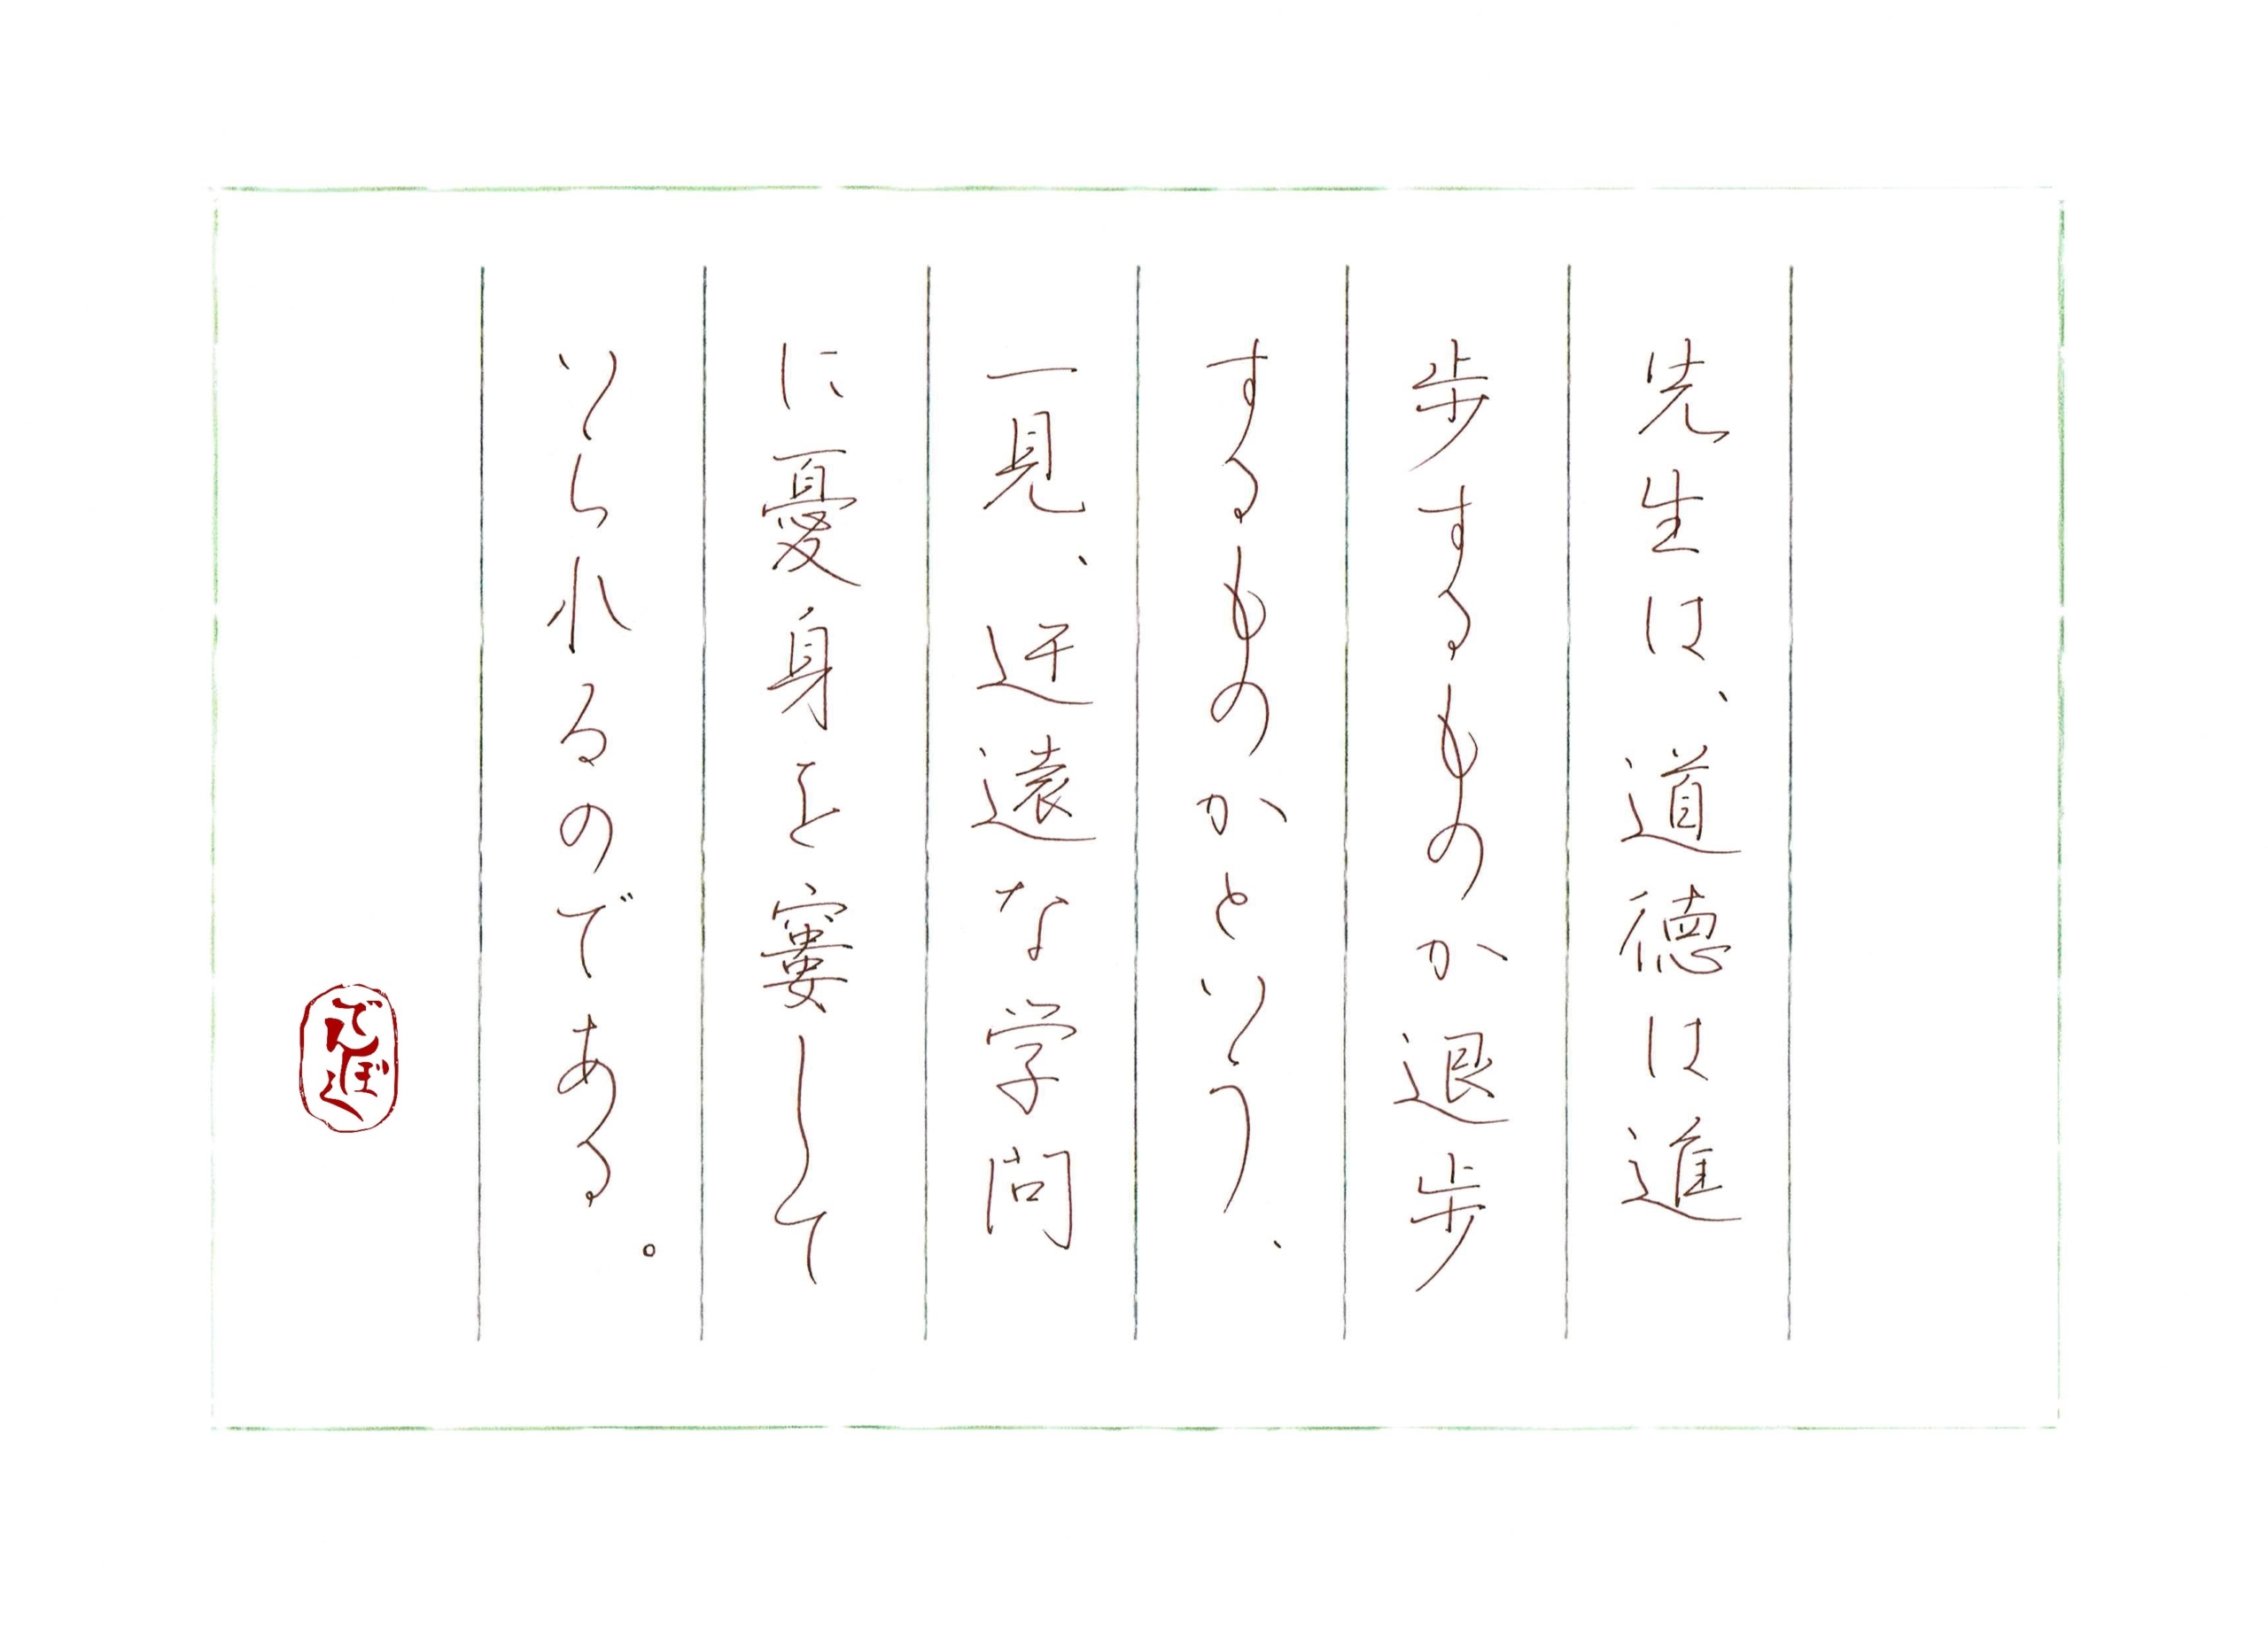 先生は、道徳は進
歩するものか退歩
するものかという、
一見、迂遠な学問
に憂身を窶して
いられるのである。
でんぼく